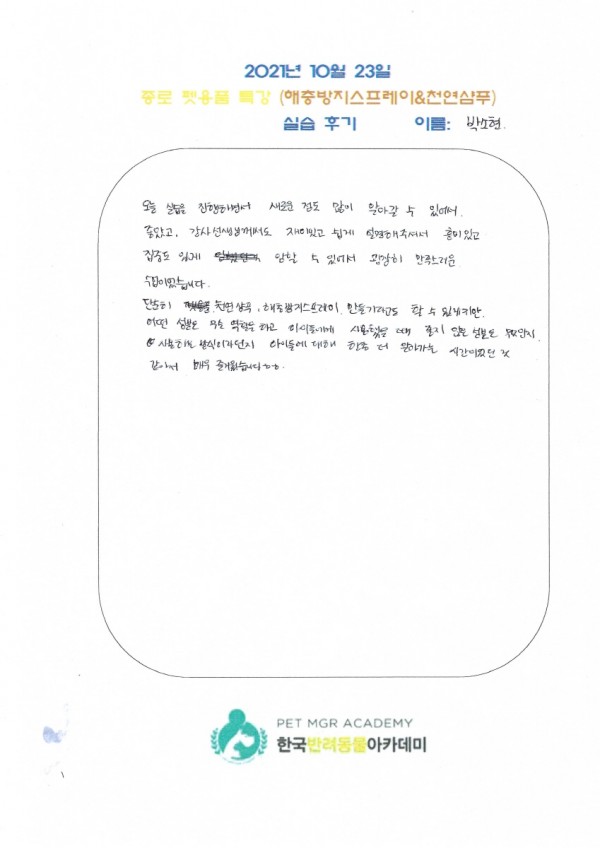 2021년 10월 23일
종로 펫용품 특강 (해충방지스프레이&천연샴푸)
실습 후기 이름: 박소현.
오늘 실습을 진행하면서 새로운 점도 많이 알아갈 수 있어서.
좋았고, 강사선생님께서도 재미있고 쉽게 설명해주셔서 흥미있고
집중도 있게 임할 수 있어서 굉장히 만족스러운
수업이었습니다.
단순히 천연샴푸, 해충방지스프레이. 만들기라고도 할 수 있겠지만.
어떤 성분도 무슨 역할을 하고 아이들에게 사용했을 때 좋지 않은 성분도 무엇인지.
사용하는 방식이라던지 아이들에 대해 한층 더 알아가는 시간이었던 것
같아서 매우 즐거웠습니다ㅎㅎ.
PET MGR ACADEMY
한국반려동물아카데미